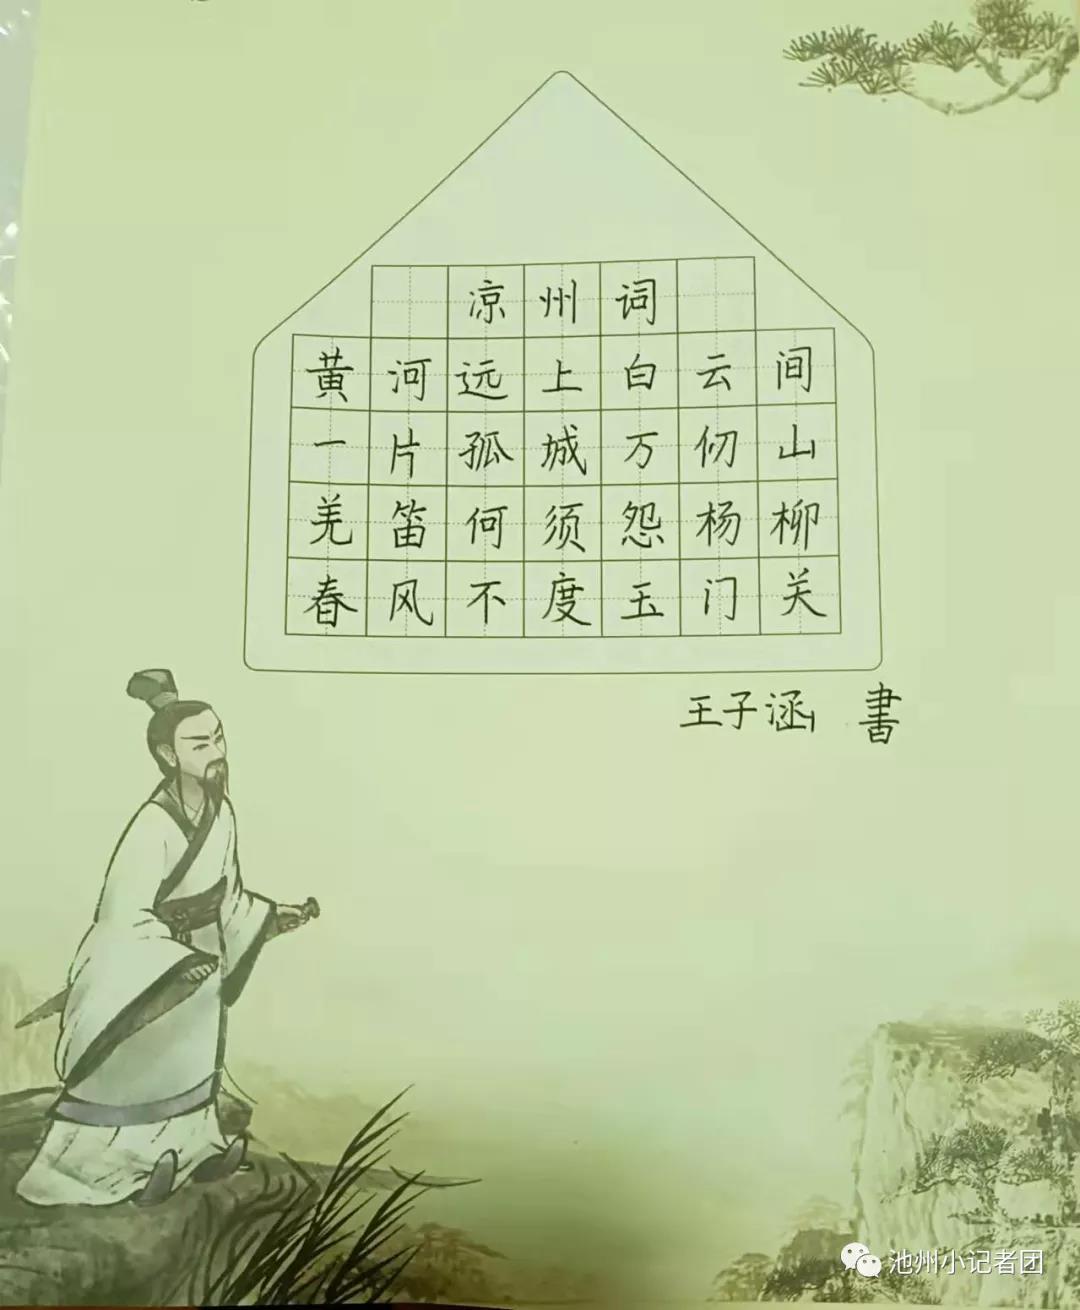 凉州词
黄河远上白云间
一片孤城万仞山
羌笛何须怨杨柳
春风不度玉门关
王子涵 書
池州小记者团